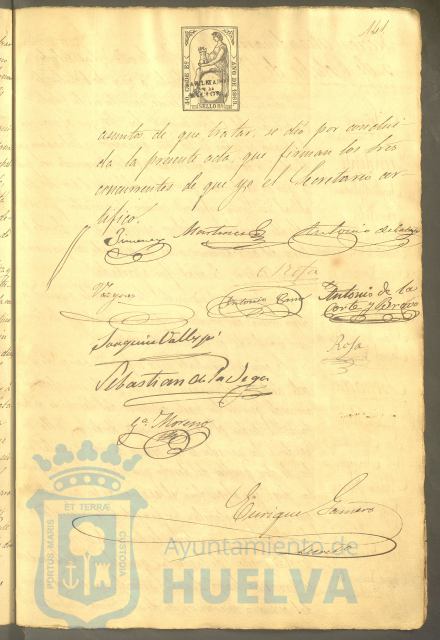 141
AÑO DE 1883.
SELLO
asuntos de que tratar, se dio por conclui-
da la presente acta, que firman los Sres
concurrentes de que yo el Secretario cer-
tifico.
Jimenez Martinez Antonio de la
Rofa
Vargas Antonio Antonio de la
Corte y Bravo
Joaquin Vallejo Rofa
Sebastian de la Vega
Gª Moreno
Enrique Gamero
ET TERRÆ
PORTUS MARIS
CUSTODIA
Ayuntamiento de
HUELVA